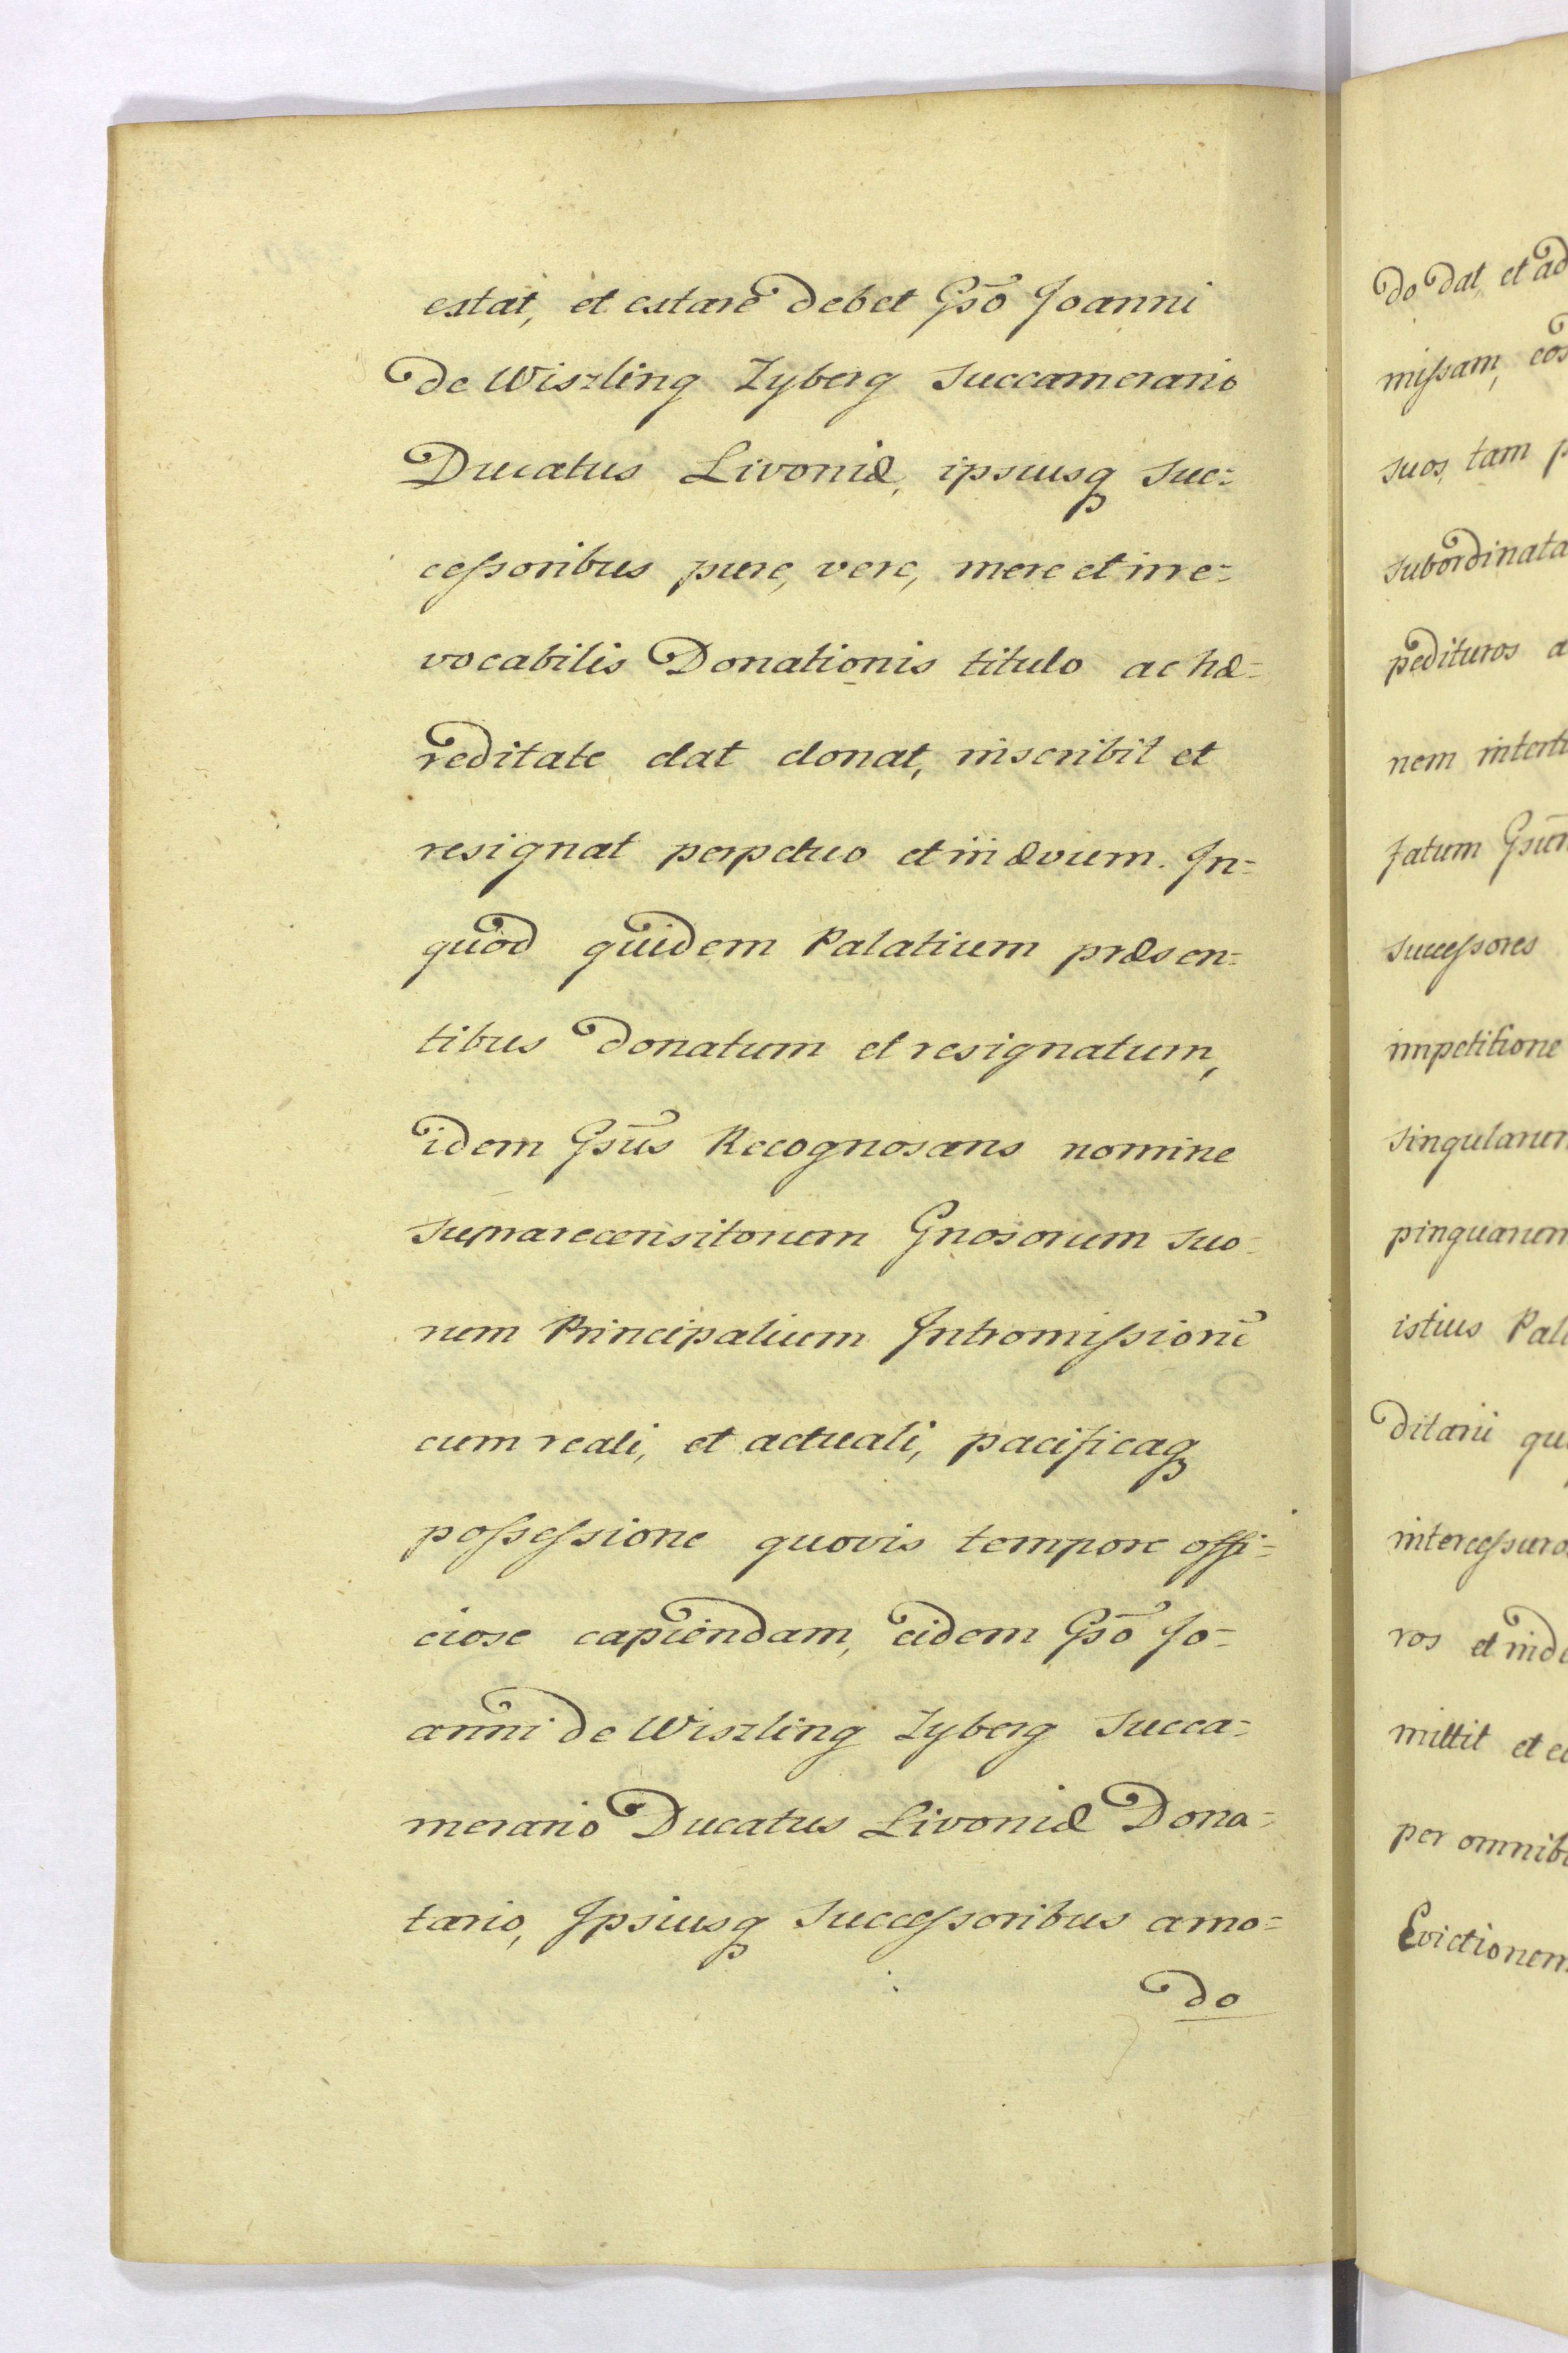 extat, et extare debet Gsō Joanni
de Wiszling Zyberg Succamerario
Ducatus Livoniæ, ipsiusq Suc=
cessoribus pure, vere, mere et irre=
vocabilis Donationis titulo ac hæ=
reditate dat donat, inscribit et
resignat perpetuo et in ævum. In=
quod quidem Palatium præsen=
tibus donatum et resignatum,
idem Gsūs Recognoscens nomine
suprarecensitorum Gnosorum suo=
rum Principalium Intromissionē
cum reali, et actuali, pacificaq
possessione quovis tempore offi=
ciose capiendam, eidem Gsō Jo=
anni de Wiszling Zyberg Succa=
merario Ducatus Livoniæ Dona=
tario, Ipsiusq Successoribus amo=
do
do dat, et ad
missam, eos
suos, tam p
subordinata
pedituros a
nem interte
fatum Gsūm
Successores
impetitione
singularum
pinquarum
istius Pala
ditarii qu
intercessuro
ros et inde
mittit et e
per omnib
Evictionem